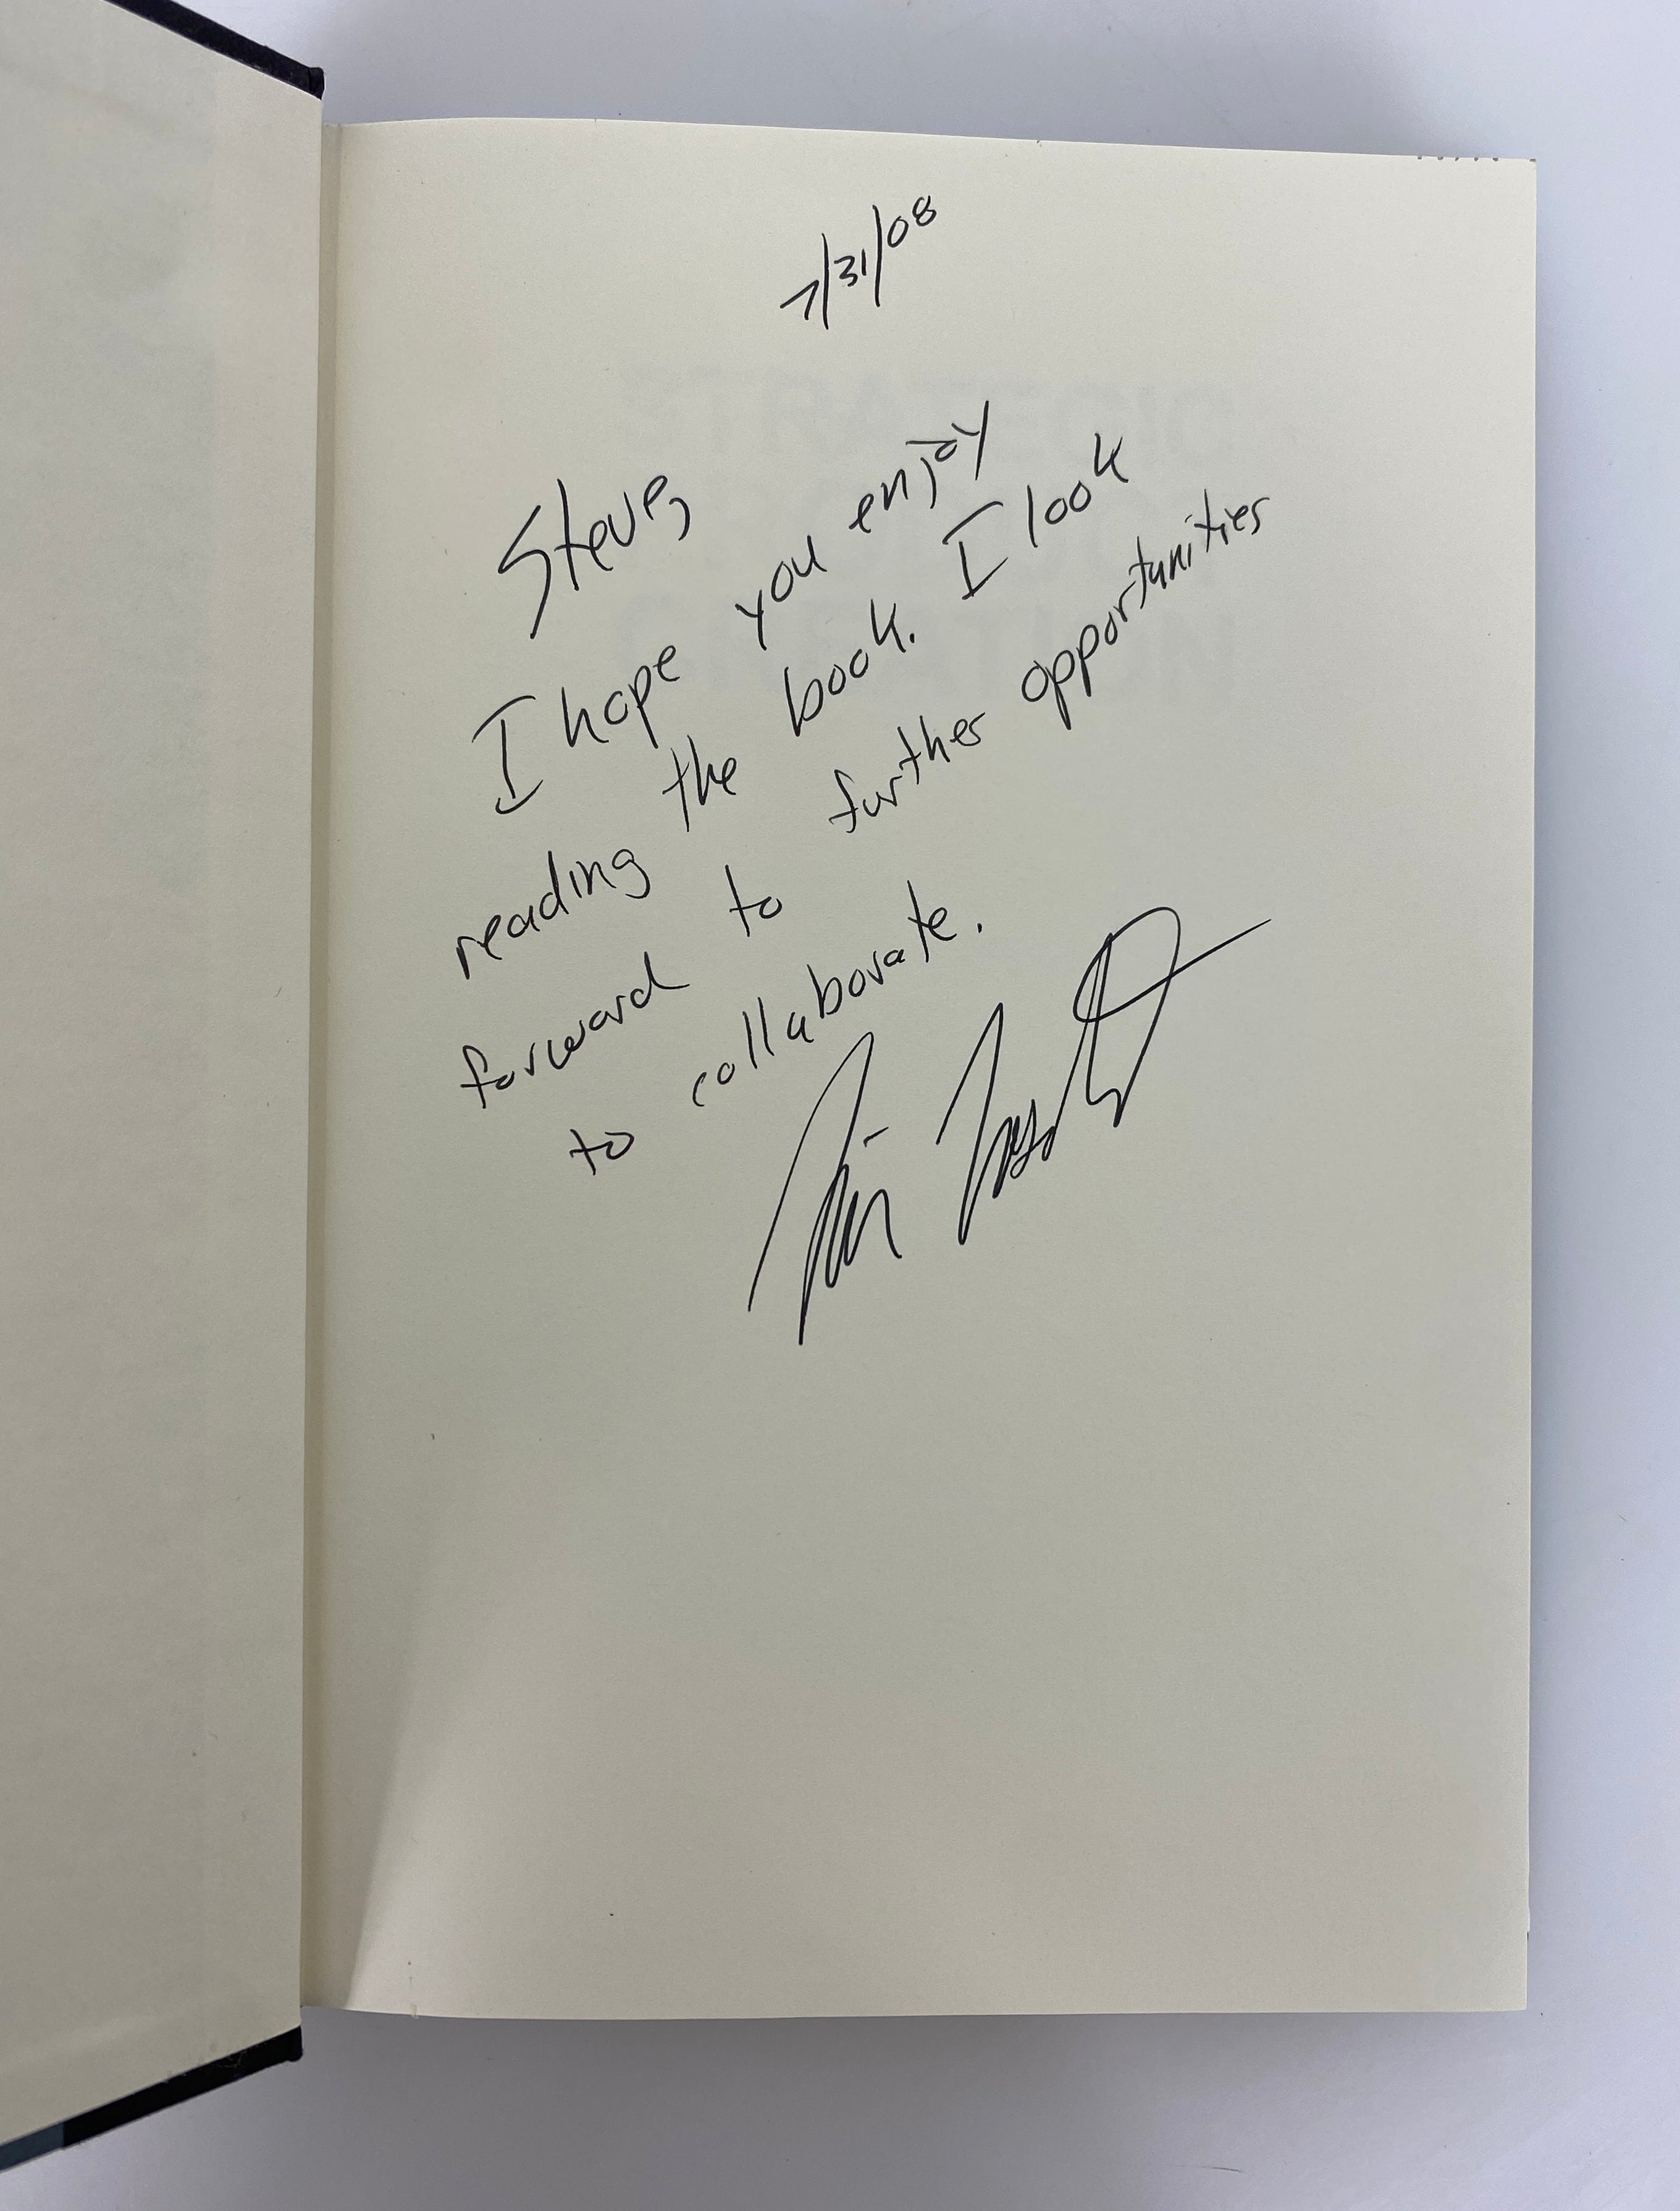 7/31/08
Steve,
I hope you enjoy
reading the book. I look
forward to further opportunities
to collaborate.